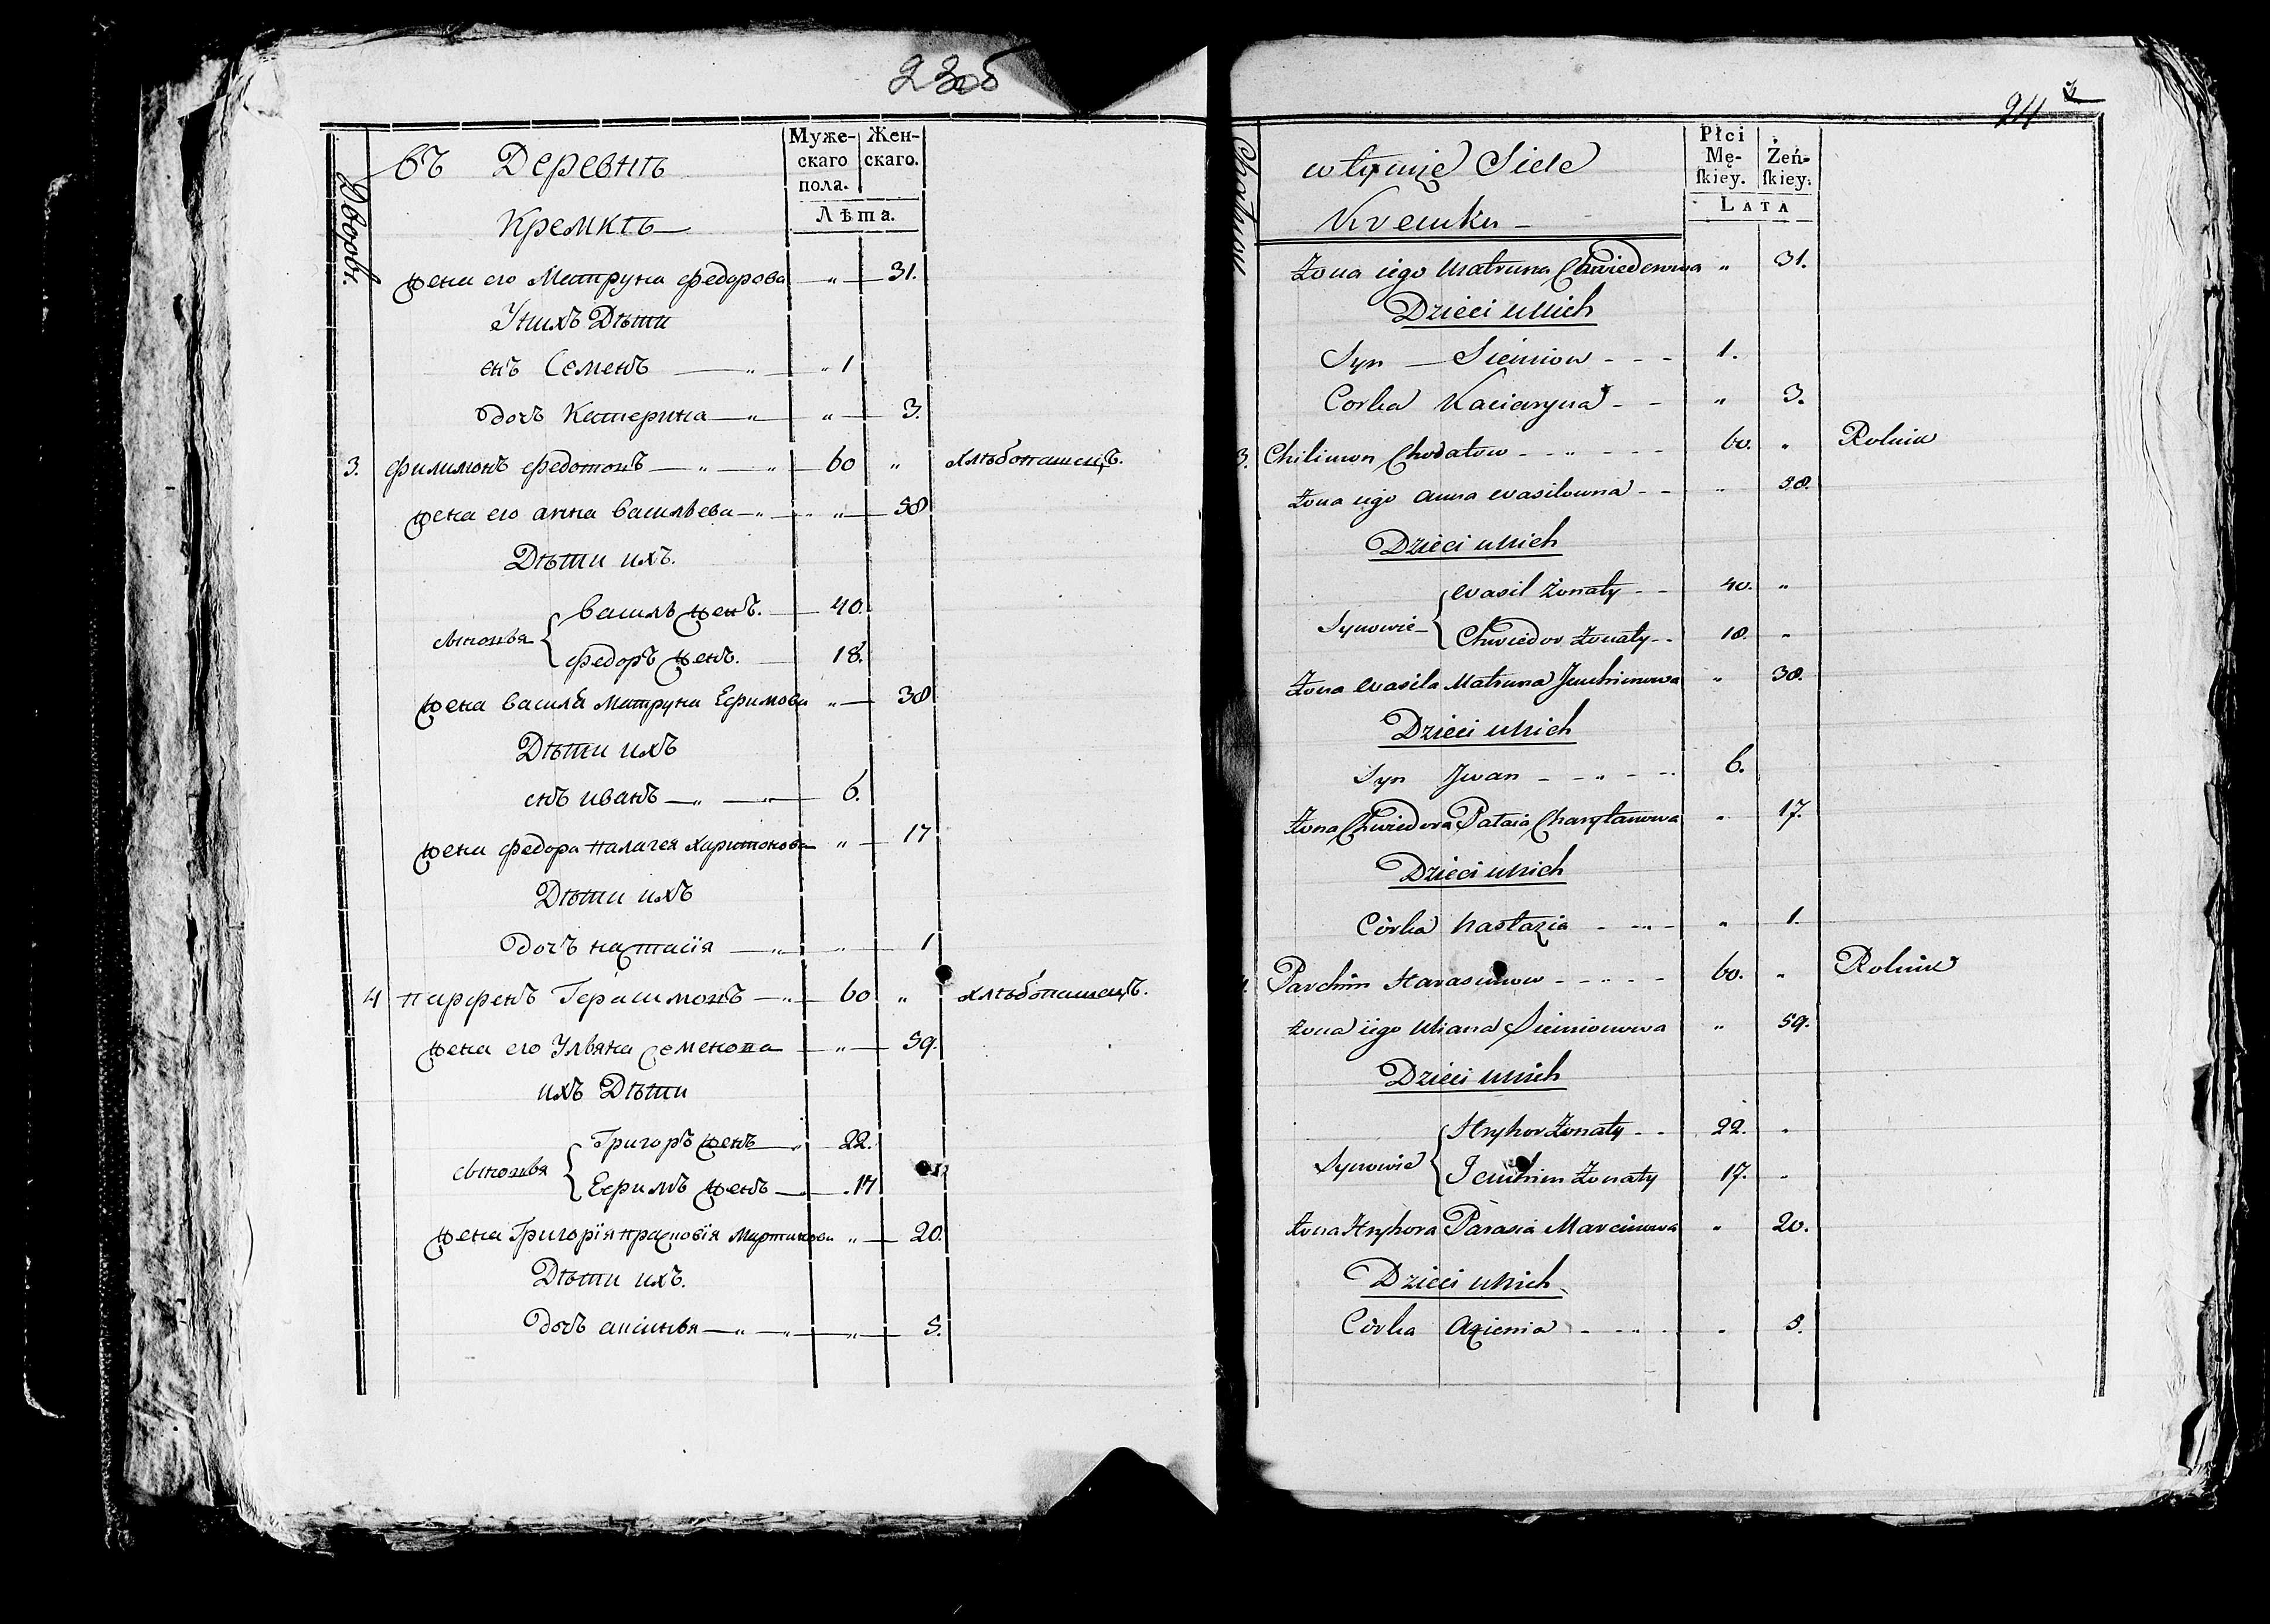 23об
Дворовъ.
въ Деревнѣ
Кремкѣ
Муже-
скаго
пола.
Жен-
скаго.
Лѣта.
жена его Матруна федорова " 31.
У нихъ Дѣти
снъ Семенъ " 1
дочь Катерина " 3.
3. филимонъ федотовъ 60 " хлѣбопашецъ.
жена его анна васильева " 58
Дѣти ихъ.
сыновья
василь женъ. 40.
федоръ женъ. 18.
жена василя матруна Ефимова " 38
Дѣти ихъ
снъ иванъ 6.
жена федора палагея харитонова " 17
Дѣти ихъ
дочь настасія " 1
4 парфенъ Герасимовъ 60 " хлѣбопашецъ.
жена его Ульяна семенова " 59.
ихъ Дѣти
сыновья
Григоръ женъ 22.
Ефимъ женъ 17
жена Григорія прасковія мартинова " 20.
Дѣти ихъ.
дочь аксинья " 5.
24
Chałupy
w tymże Siele
Kremku
Płci
Mę-
skiey.
Żeń-
skiey.
LATA
Żona iego Matruna Chwiedorowa " 31.
Dzieci u nich
Syn Siemion 1.
Corka Kacieryna " 3.
3. Chilimon Chodatow 60. " Rolnik
Żona iego Anna Wasilowna " 58.
Dzieci u nich
Synowie
Wasil żonaty 40. "
Chwiedor żonaty 18. "
Żona Wasila Matruna Jeuchimowa " 38.
Dzieci u nich
Syn Jwan 6.
Żona Chwiedora Pałaia Charytanowa " 17.
Dzieci u nich
Córka Nastazia " 1.
4. Parchim Harasimow 60. " Rolnik
Żona iego Uliana Siemionowa " 59.
Dzieci u nich
Synowie
Hryhor żonaty 22. "
Jeuchim żonaty 17. "
Żona Hryhora Parasia Marcinowa " 20.
Dzieci u nich
Córka Axienia " 5.